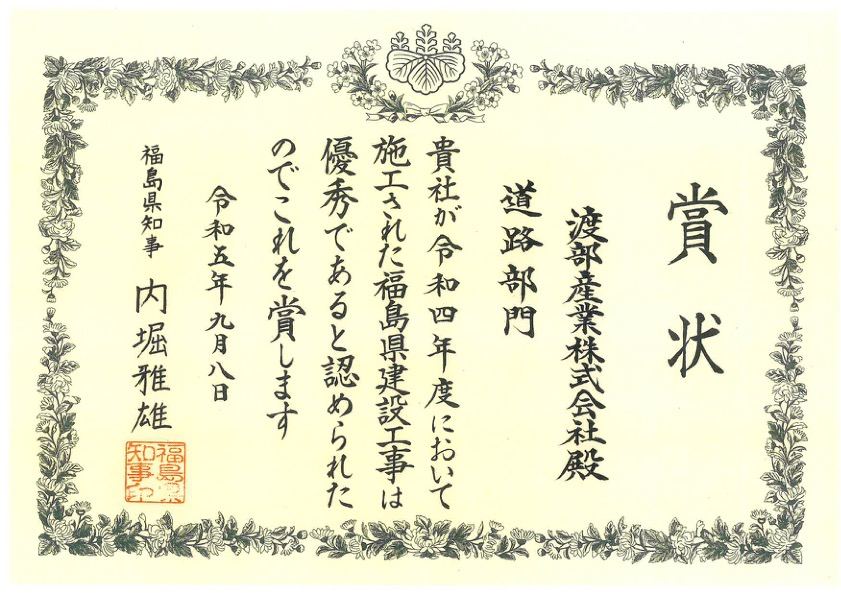 賞状
渡部産業株式会社殿
道路部門
貴社が令和四年度において
施工された福島県建設工事は
優秀であると認められた
のでこれを賞します
令和五年九月八日
福島県知事 内堀雅雄
福島県
知事印